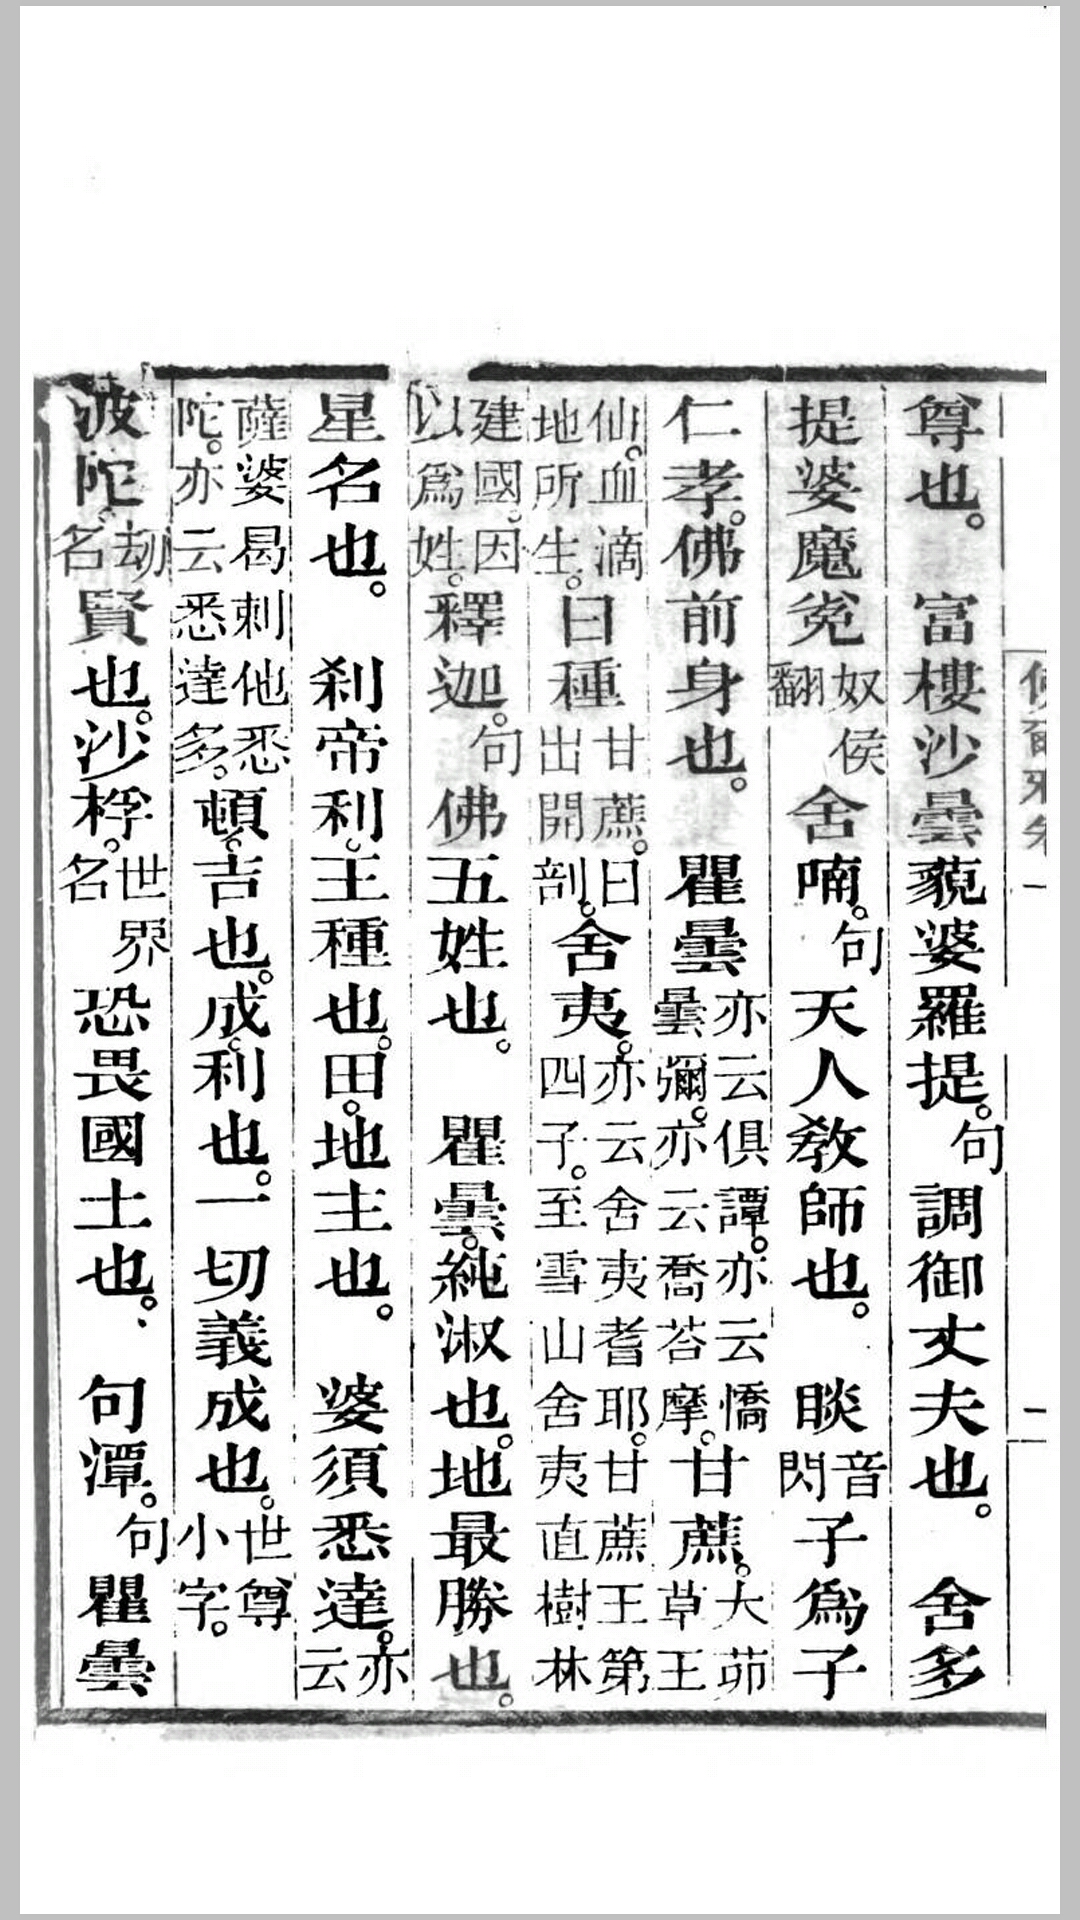 佛爾雅卷一　二
尊也。　富樓沙曇藐婆羅提。句調御丈夫也。　舍多
提婆魔㝹奴侯翻　舍喃。句天人教師也。　睒音閃子爲子
仁孝。佛前身也。　瞿曇亦云俱譚。亦云憍曇彌。亦云喬荅摩。甘蔗。大茆草王
仙。血滴地所生。日種甘蔗。日出開剖。舍夷。亦云舍夷耆耶。甘蔗王第四子。至雪山舍夷直樹林
建國。因以爲姓。釋迦。句佛五姓也。　瞿曇。純淑也。地最勝也。
星名也。　刹帝利。王種也。田。地主也。　婆須悉達。亦云
薩婆曷刺他悉陀。亦云悉達多。頓。吉也。成。利也。一切義成也。世尊小字。
波陀。劫名賢也。沙桴。世界名恐畏國土也。　句潭。句瞿曇